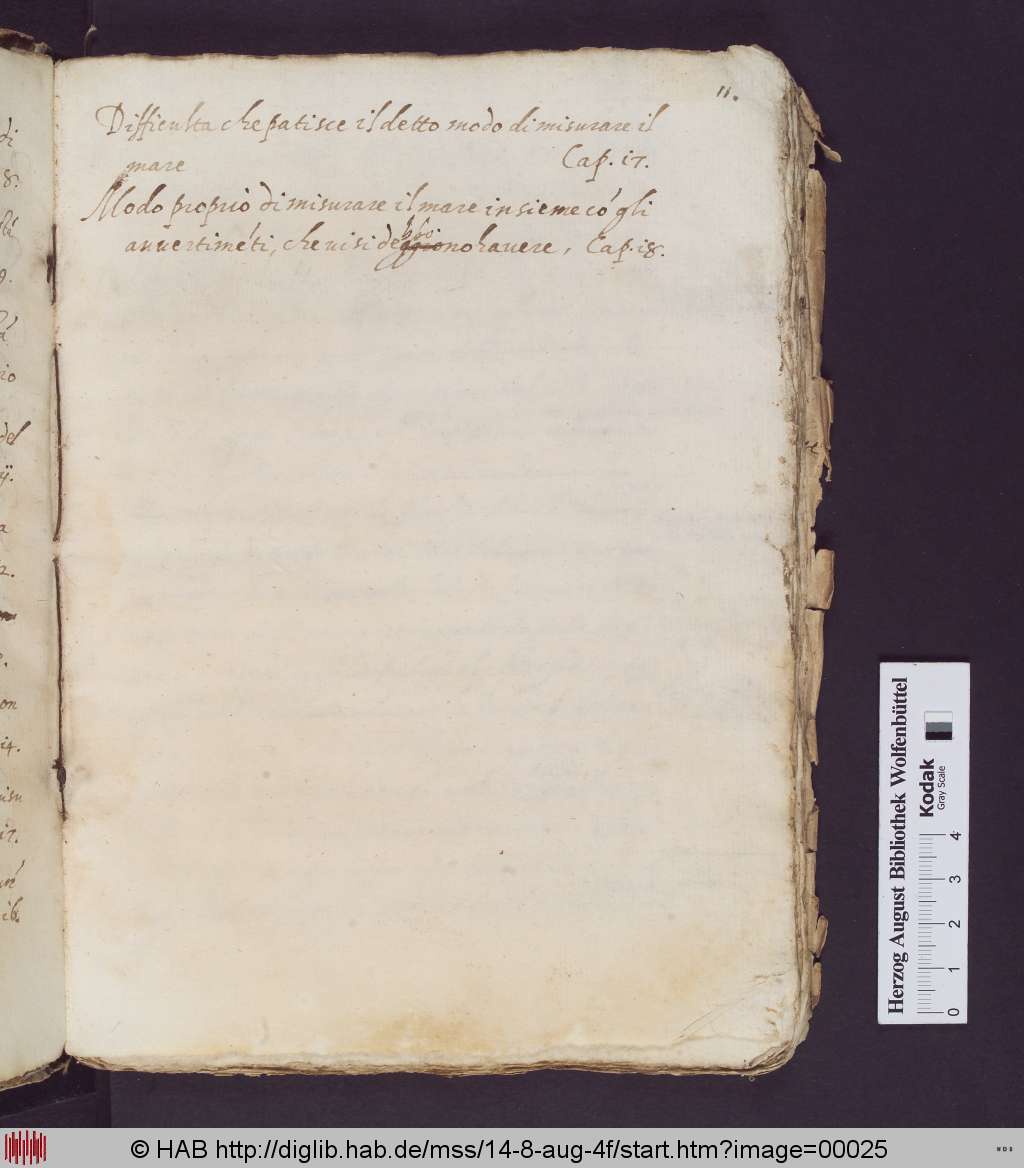 di
8.
9.
io
del
ij.
a
2.
on
14.
misu
17.
16.
11.
Difficulta che patisce il detto modo di misurare il
mare Cap. 17.
Modo proprio di misurare il mare insieme có gli
auuertiméti, che ui si deggionohauere, Cap. 18.
bbo
Herzog August Bibliothek Wolfenbüttel
Kodak
Gray Scale
0 1 2 3 4
© HAB http://diglib.hab.de/mss/14-8-aug-4f/start.htm?image=00025